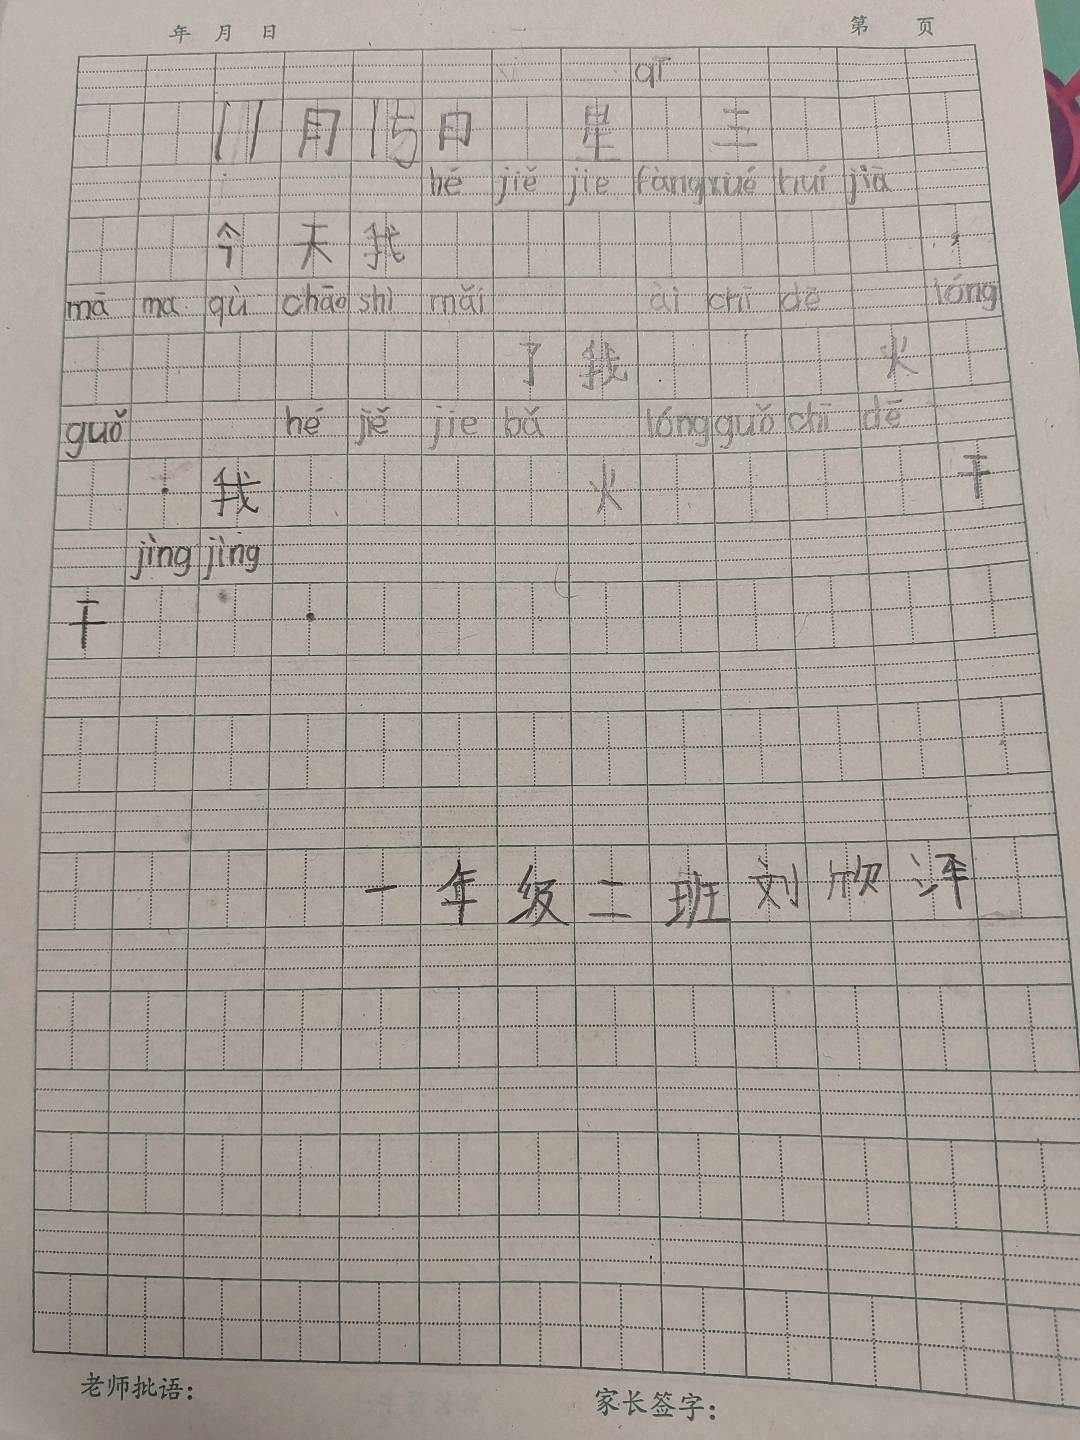 年 月 日 第 页
qī
11月15日 星 三
hé jiě jie fàng xué huí jiā
今天我 ,
mā ma qù chāo shì mǎi ài chī dē lóng
了我 火
guǒ hé jiě jie bǎ lóng guǒ chī dē
. 我 火 干
jìng jìng
干 .
一年级二班刘欣评
老师批语:
家长签字: